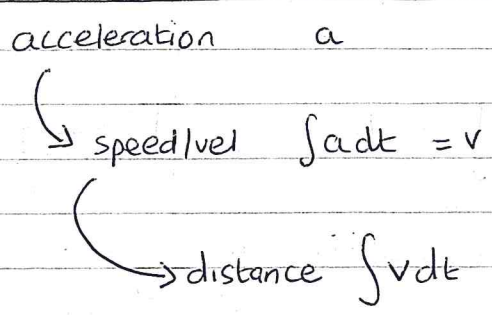 acceleration a
speed/vel ∫adt = v
distance ∫vdt